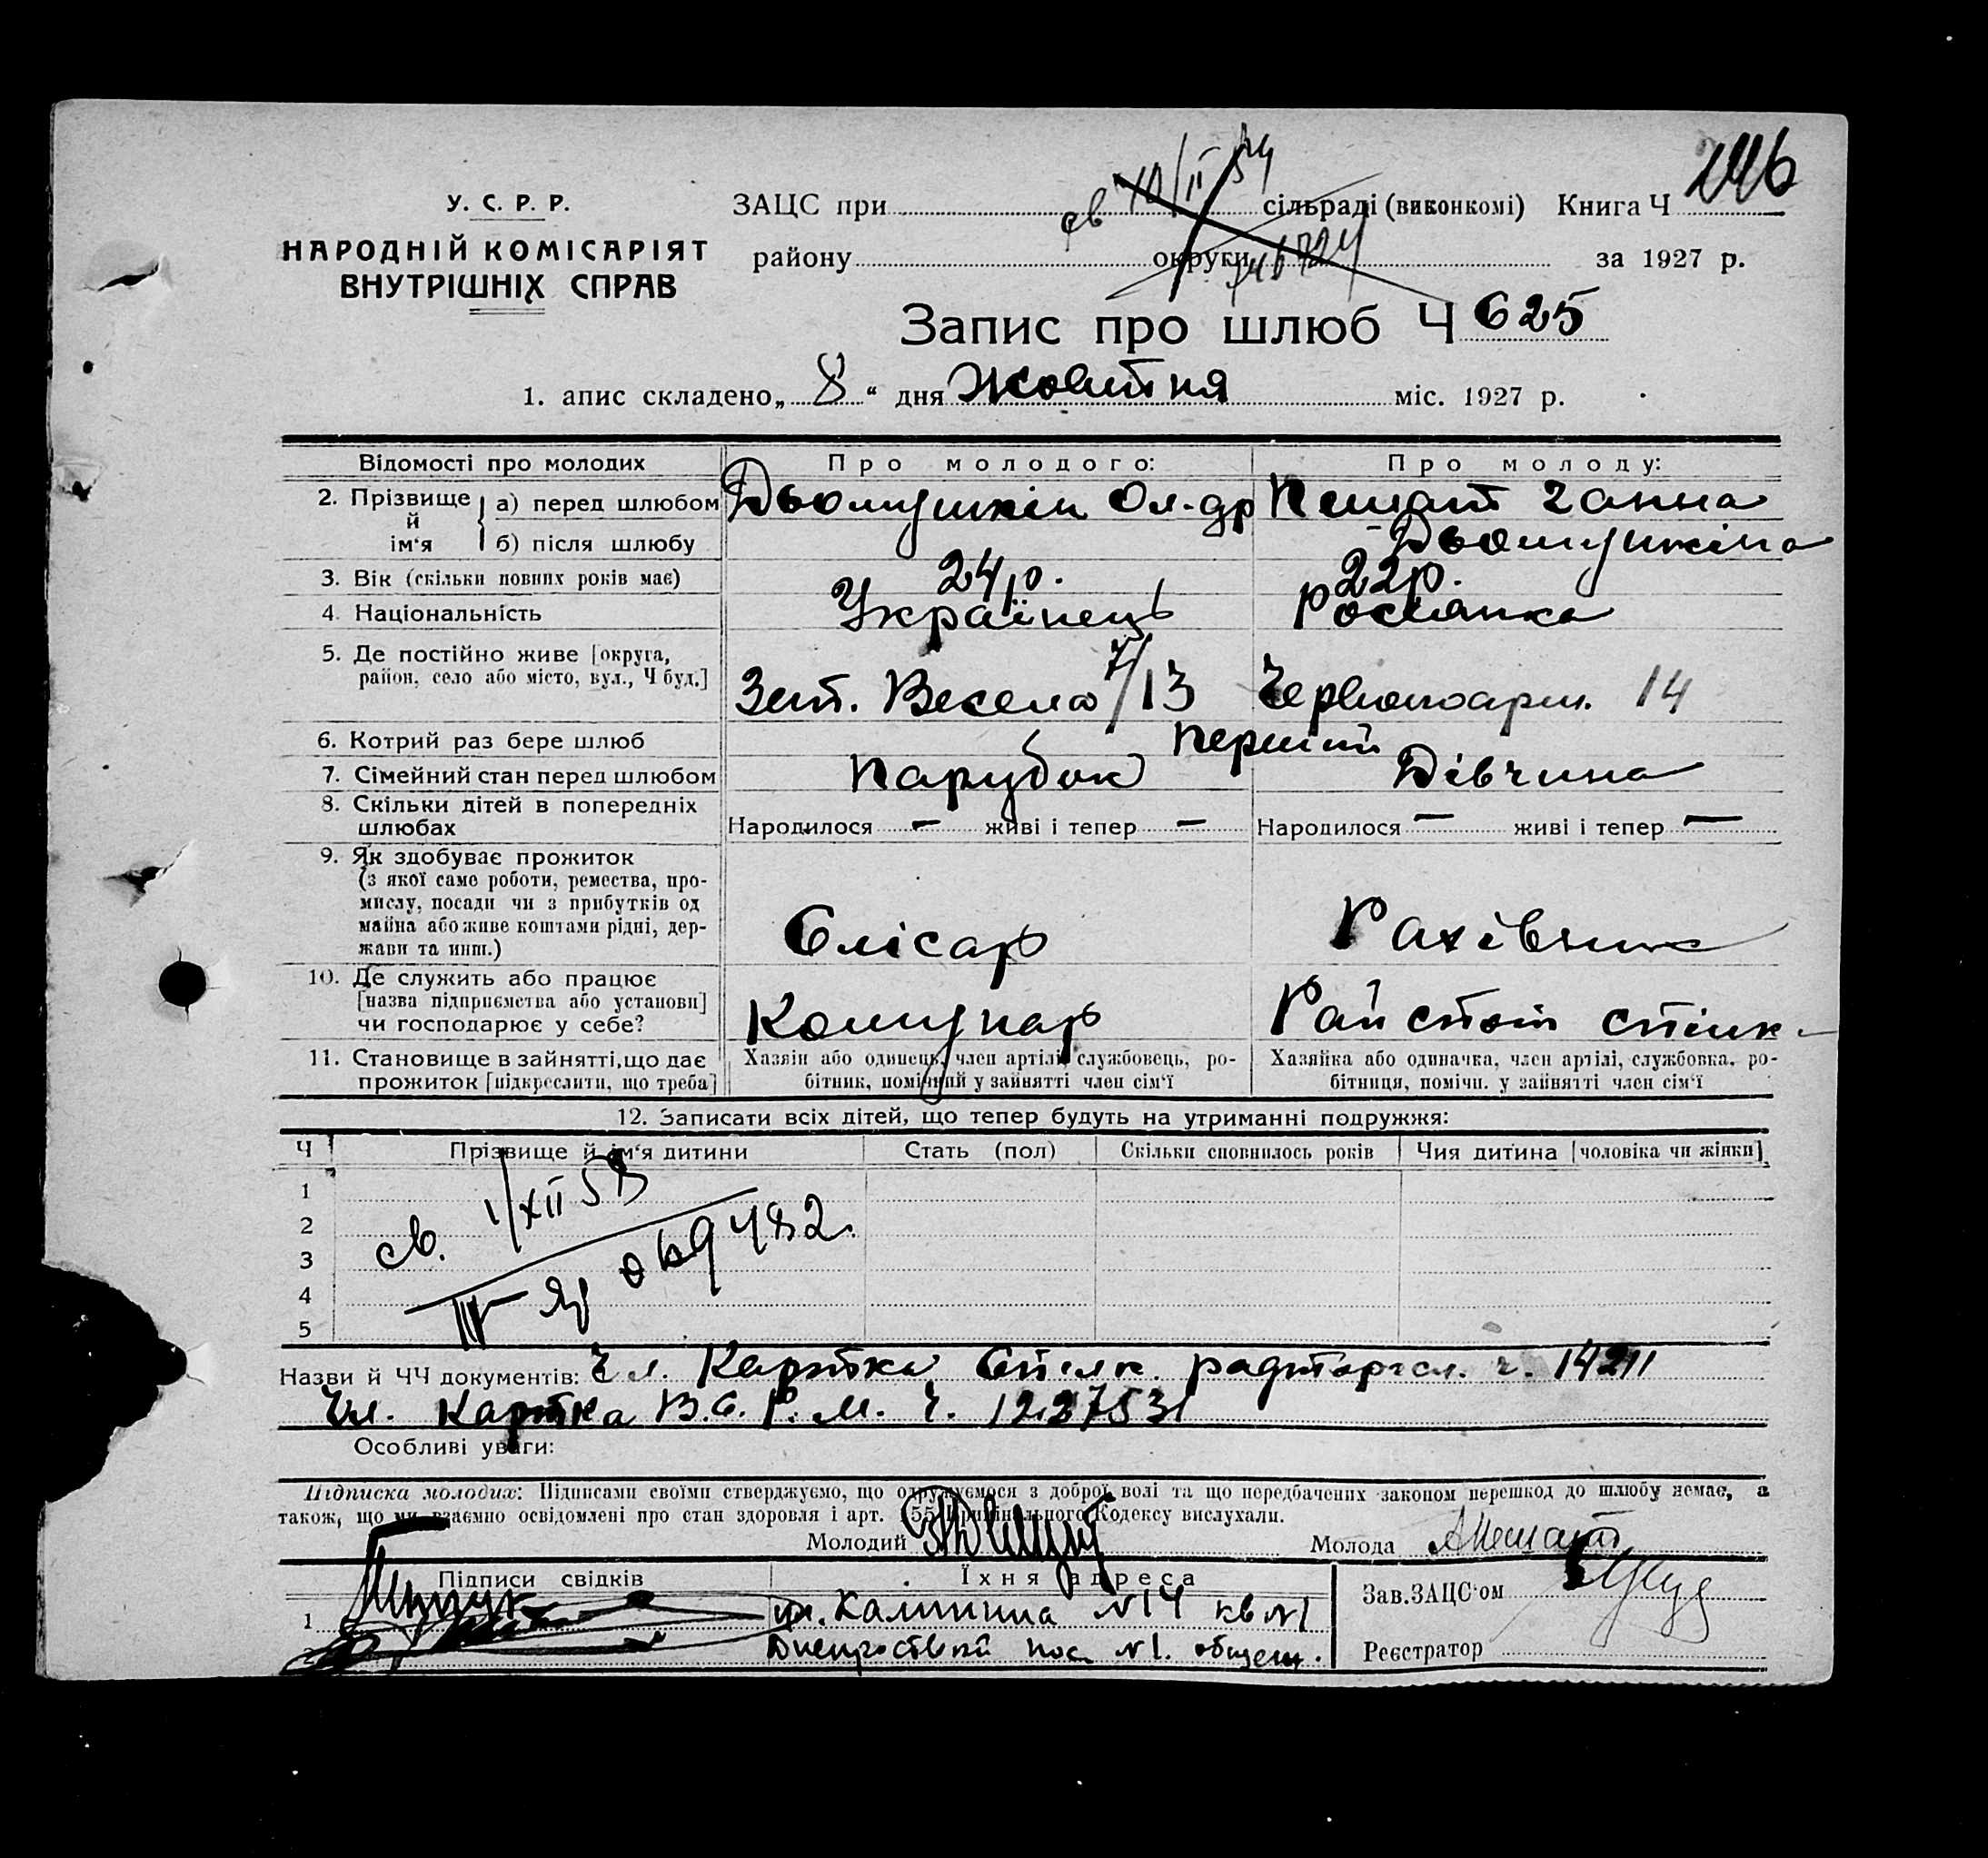 246
св 10/II 54
У. С. Р. Р.
НАРОДНІЙ КОМІСАРІЯТ
ВНУТРІШНІХ СПРАВ
ЗАЦС при сільраді (виконкомі) Книга Ч
району округи за 1927 р.
Запис про шлюб Ч 625
1. апис складено „ 8 “ дня Жовтня міс. 1927 р.
Відомості про молодих Про молодого: Про молоду:
2. Прізвище й ім‘я а) перед шлюбом Дьомушкін Ол-др Пешат Ганна
б) після шлюбу - Дьомушкіна
3. Вік (скільки повних років має) 24 р. 22 р.
4. Національність Українець Росіянка
5. Де постійно живе [округа,
район, село або місто, вул., Ч буд.] Весела 7/13 Червоноарм. 14
6. Котрий раз бере шлюб перший
7. Сімейний стан перед шлюбом Парубок Дівчина
8. Скільки дітей в попередніх
шлюбах Народилося — живі і тепер — Народилося — живі і тепер —
9. Як здобуває прожиток
(з якої саме роботи, ремества, про-
мислу, посади чи з прибутків од
майна або живе коштами рідні, дер-
жави та инш.) Слісарь Рахівник
10. Де служить або працює
[назва підприємства або установи]
чи господарює у себе? Комунар Рай спілк
11. Становище в зайнятті, що дає
прожиток [підкреслити, що треба]
Хазяїн або одинець, член артілі, службовець, ро-
бітник, помічний у зайнятті член сім‘ї
Хазяйка або одиначка, член артілі, службовка, ро-
бітниця, помічн. у зайнятті член сім‘ї
12. Записати всіх дітей, що тепер будуть на утриманні подружжя:
Ч Прізвище й ім‘я дитини Стать (пол) Скільки сповнилось років Чия дитина [чоловіка чи жінки]
1
2
3
4
5
св. 1/XII 58
482
Назви й ЧЧ документів: Чл. Картка Спілк. радторгсл. ч. 14211
Чл. Картка В.С.Р.М. ч. 1237531
Особливі уваги:
Підписка молодих: Підписами своїми стверджуємо, що одружуємося з доброї волі та що передбачених законом перешкод до шлюбу немає, а
також, що ми взаємно освідомлені про стан здоровля і арт. 155 Кримінального Кодексу вислухали.
Молодий Молода АПешат
Підписи свідків Їхня адреса
1 ул. Калинина №14 кв №1
2 пос №1. общеж.
Зав. ЗАЦС‘ом
Реєстратор